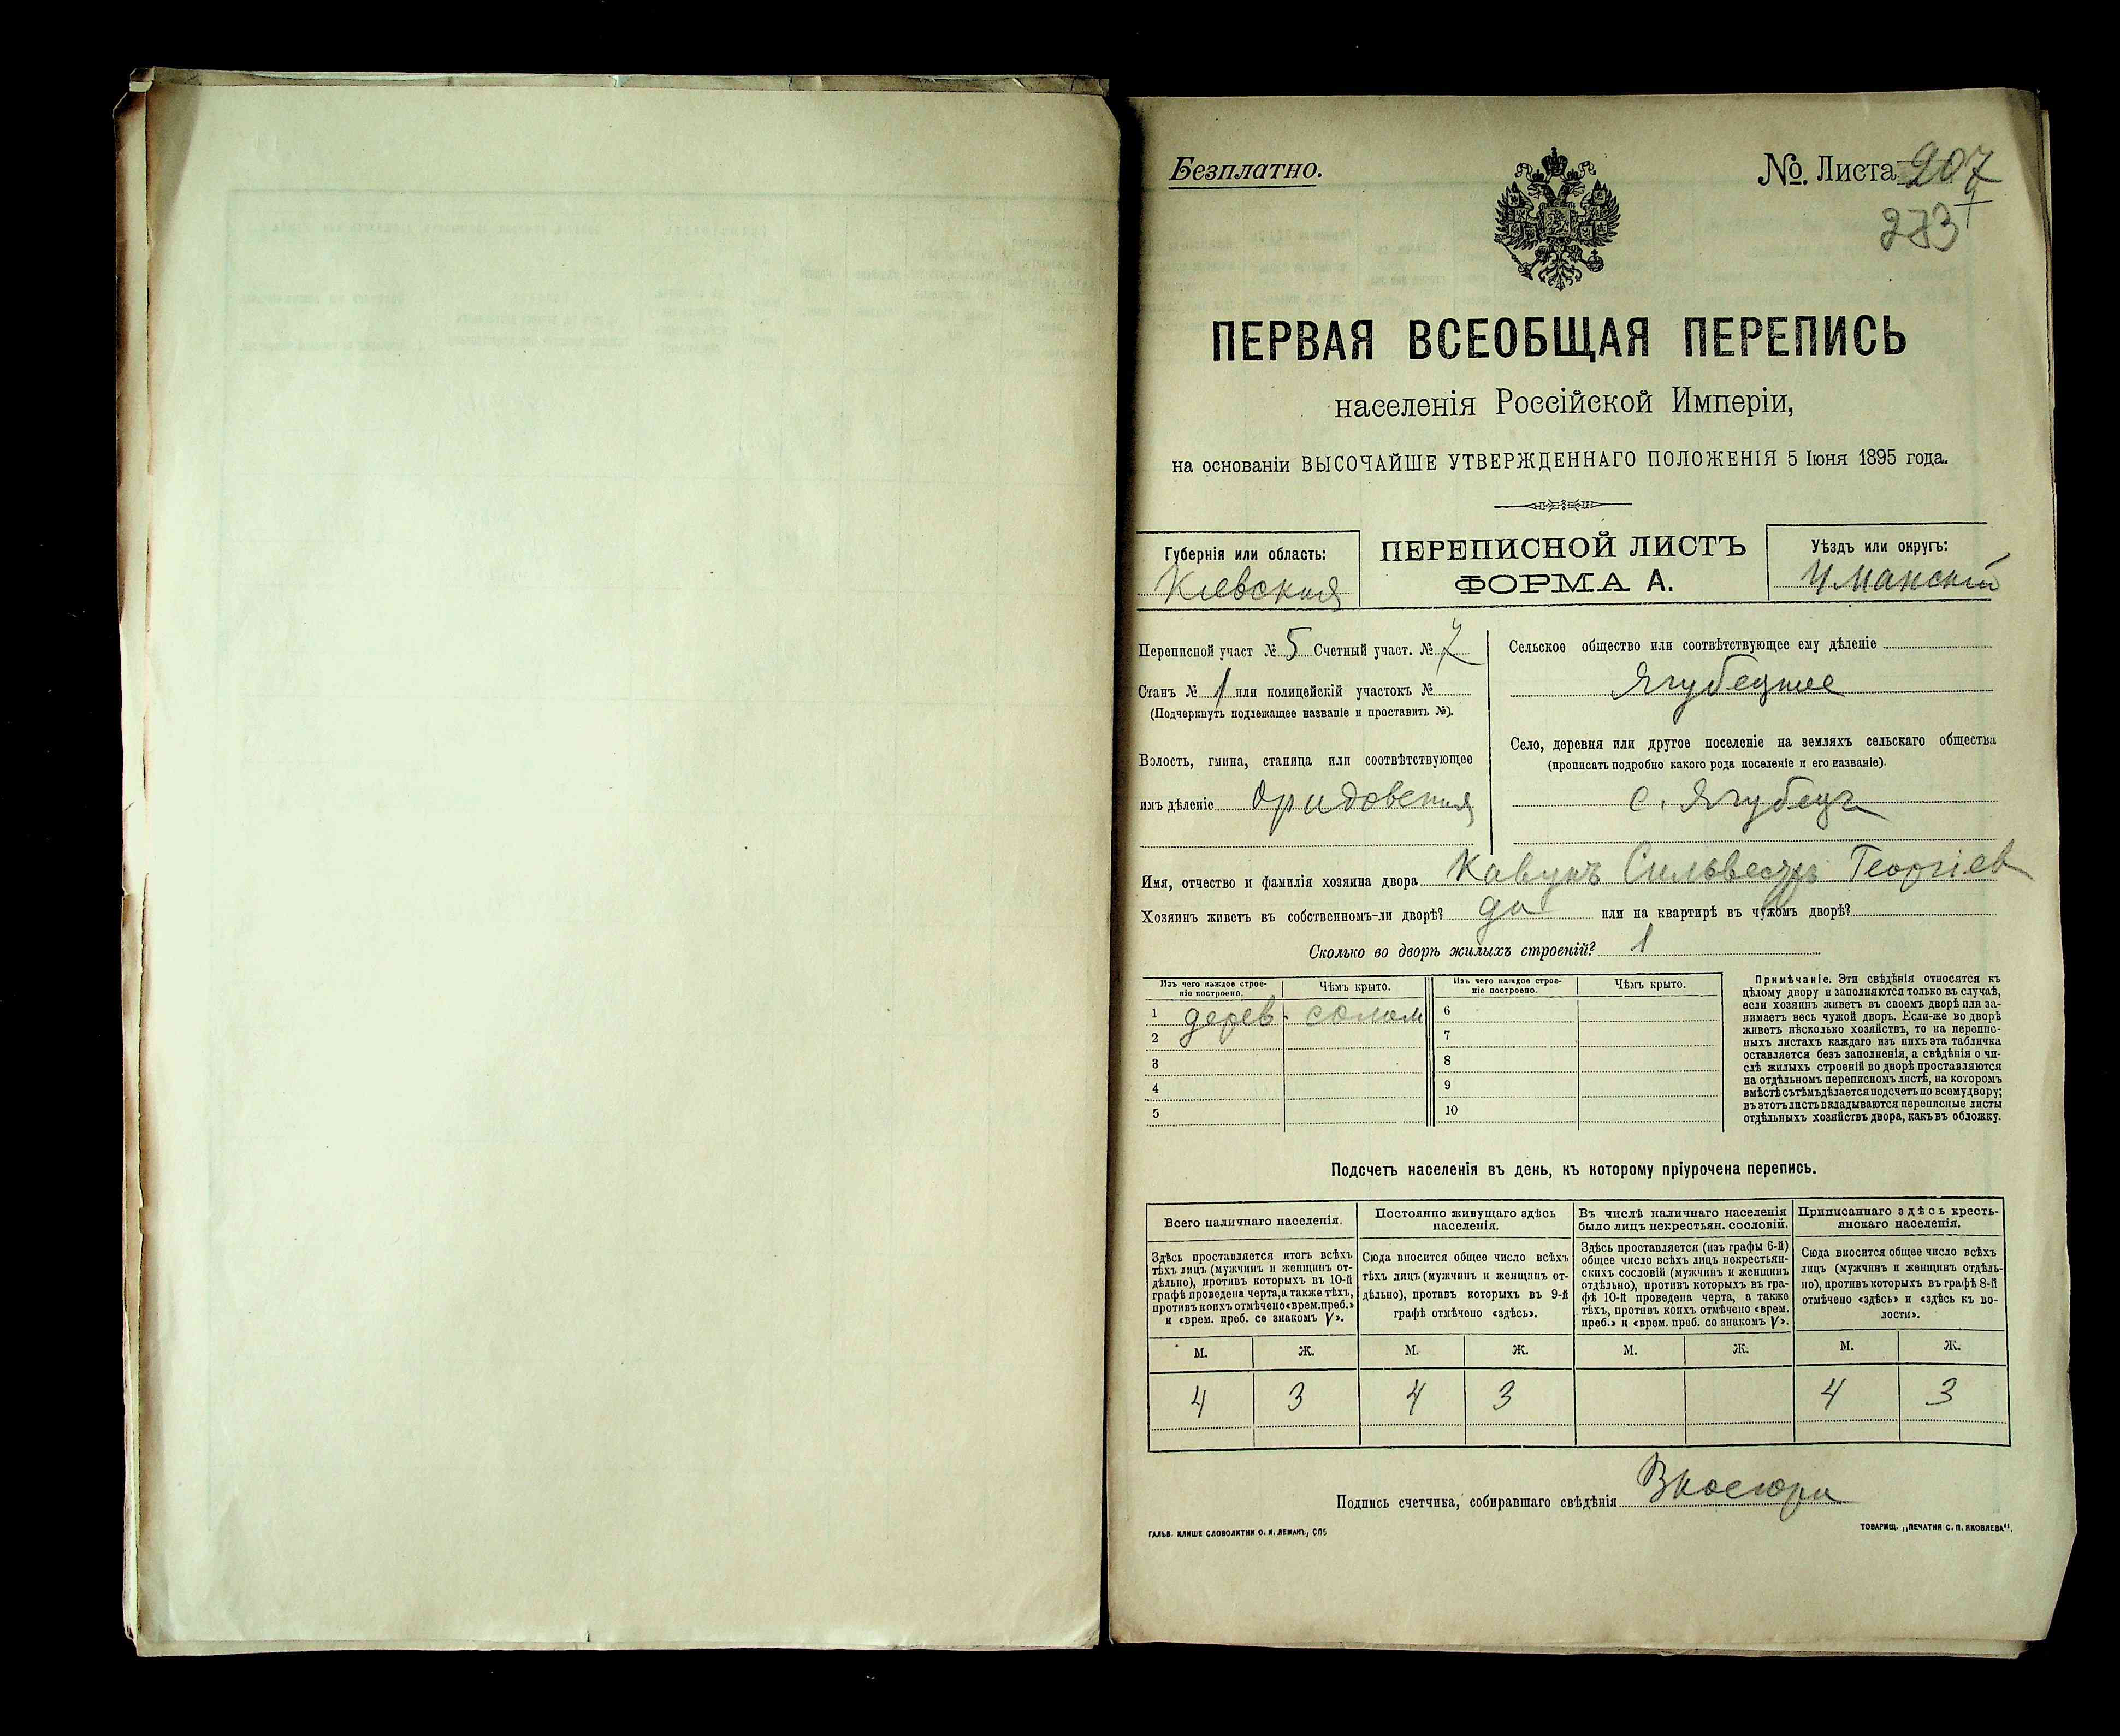 Безплатно.
№. Листа 207
273
ПЕРВАЯ ВСЕОБЩАЯ ПЕРЕПИСЬ
населенія Россійской Имперіи,
на основаніи ВЫСОЧАЙШЕ УТВЕРЖДЕННАГО ПОЛОЖЕНІЯ 5 Іюня 1895 года.
Губернія или область:
Кіевская
ПЕРЕПИСНОЙ ЛИСТЪ
ФОРМА А.
Уѣздъ или округъ:
Уманскій
Переписной участ № 5 Счетный участ. № 7
Станъ № 1 или полицейскій участокъ №
(Подчеркнуть подлежащее названіе и проставить №).
Волость, гмина, станица или соотвѣтствующее
имъ дѣленіе
Сельское общество или соотвѣтствующее ему дѣленіе
Ягубецкое
Село, деревня или другое поселеніе на земляхъ сельскаго общества
(прописать подробно какого рода поселеніе и его названіе).
с. Ягубецъ
Имя, отчество и фамилія хозяина двора Кавунъ Сильвестръ Георгіев
Хозяинъ живетъ въ собственномъ-ли дворѣ? да или на квартирѣ въ чужомъ дворѣ?
Сколько во дворѣ жилыхъ строеній? 1
Изъ чего каждое строе-
ніе построено.
Чѣмъ крыто.
Изъ чего каждое строе-
ніе построено.
Чѣмъ крыто.
1 дерев. солом 6
2 7
3 8
4 9
5 10
Примѣчаніе. Эти свѣдѣнія относятся къ
цѣлому двору и заполняются только въ случаѣ,
если хозяинъ живетъ въ своемъ дворѣ или за-
нимаетъ весь чужой дворъ. Если-же во дворѣ
живетъ нѣсколько хозяйствъ, то на перепис-
ныхъ листахъ каждаго изъ нихъ эта табличка
оставляется безъ заполненія, а свѣдѣнія о чи-
слѣ жилыхъ строеній во дворѣ проставляются
на отдѣльномъ переписномъ листѣ, на которомъ
вмѣстѣ съ тѣмъ дѣлается подсчетъ по всему двору;
въ этотъ листъ вкладываются переписные листы
отдѣльныхъ хозяйствъ двора, какъ въ обложку.
Подсчетъ населенія въ день, къ которому пріурочена перепись.
Всего наличнаго населенія.
Здѣсь проставляется итогъ всѣхъ
тѣхъ лицъ (мужчинъ и женщинъ от-
дѣльно), противъ которыхъ въ 10-й
графѣ проведена черта, а также тѣхъ,
противъ коихъ отмѣчено «врем. преб.»
и «врем. преб. со знакомъ V».
Постоянно живущаго здѣсь
населенія.
Сюда вносится общее число всѣхъ
тѣхъ лицъ (мужчинъ и женщинъ от-
дѣльно), противъ которыхъ въ 9-й
графѣ отмѣчено «здѣсь».
Въ числѣ наличнаго населенія
было лицъ некрестьян. сословій.
Здѣсь проставляется (изъ графы 6-й)
общее число всѣхъ лицъ некрестьян-
скихъ сословій (мужчинъ и женщинъ
отдѣльно), противъ которыхъ въ гра-
фѣ 10-й проведена черта, а также
тѣхъ, противъ коихъ отмѣчено «врем.
преб.» и «врем. преб. со знакомъ V».
Приписаннаго здѣсь кресть-
янскаго населенія.
Сюда вносится общее число всѣхъ
лицъ (мужчинъ и женщинъ отдѣль-
но), противъ которыхъ въ графѣ 8-й
отмѣчено «здѣсь» и «здѣсь къ во-
лости».
М. Ж. М. Ж. М. Ж. М. Ж.
4 3 4 3 4 3
Подпись счетчика, собиравшаго свѣдѣнія
ГАЛЬВ. КЛИШЕ СЛОВОЛИТНИ О. И. ЛЕМАНЪ, СПБ
ТОВАРИЩ. „ПЕЧАТНЯ С. П. ЯКОВЛЕВА".